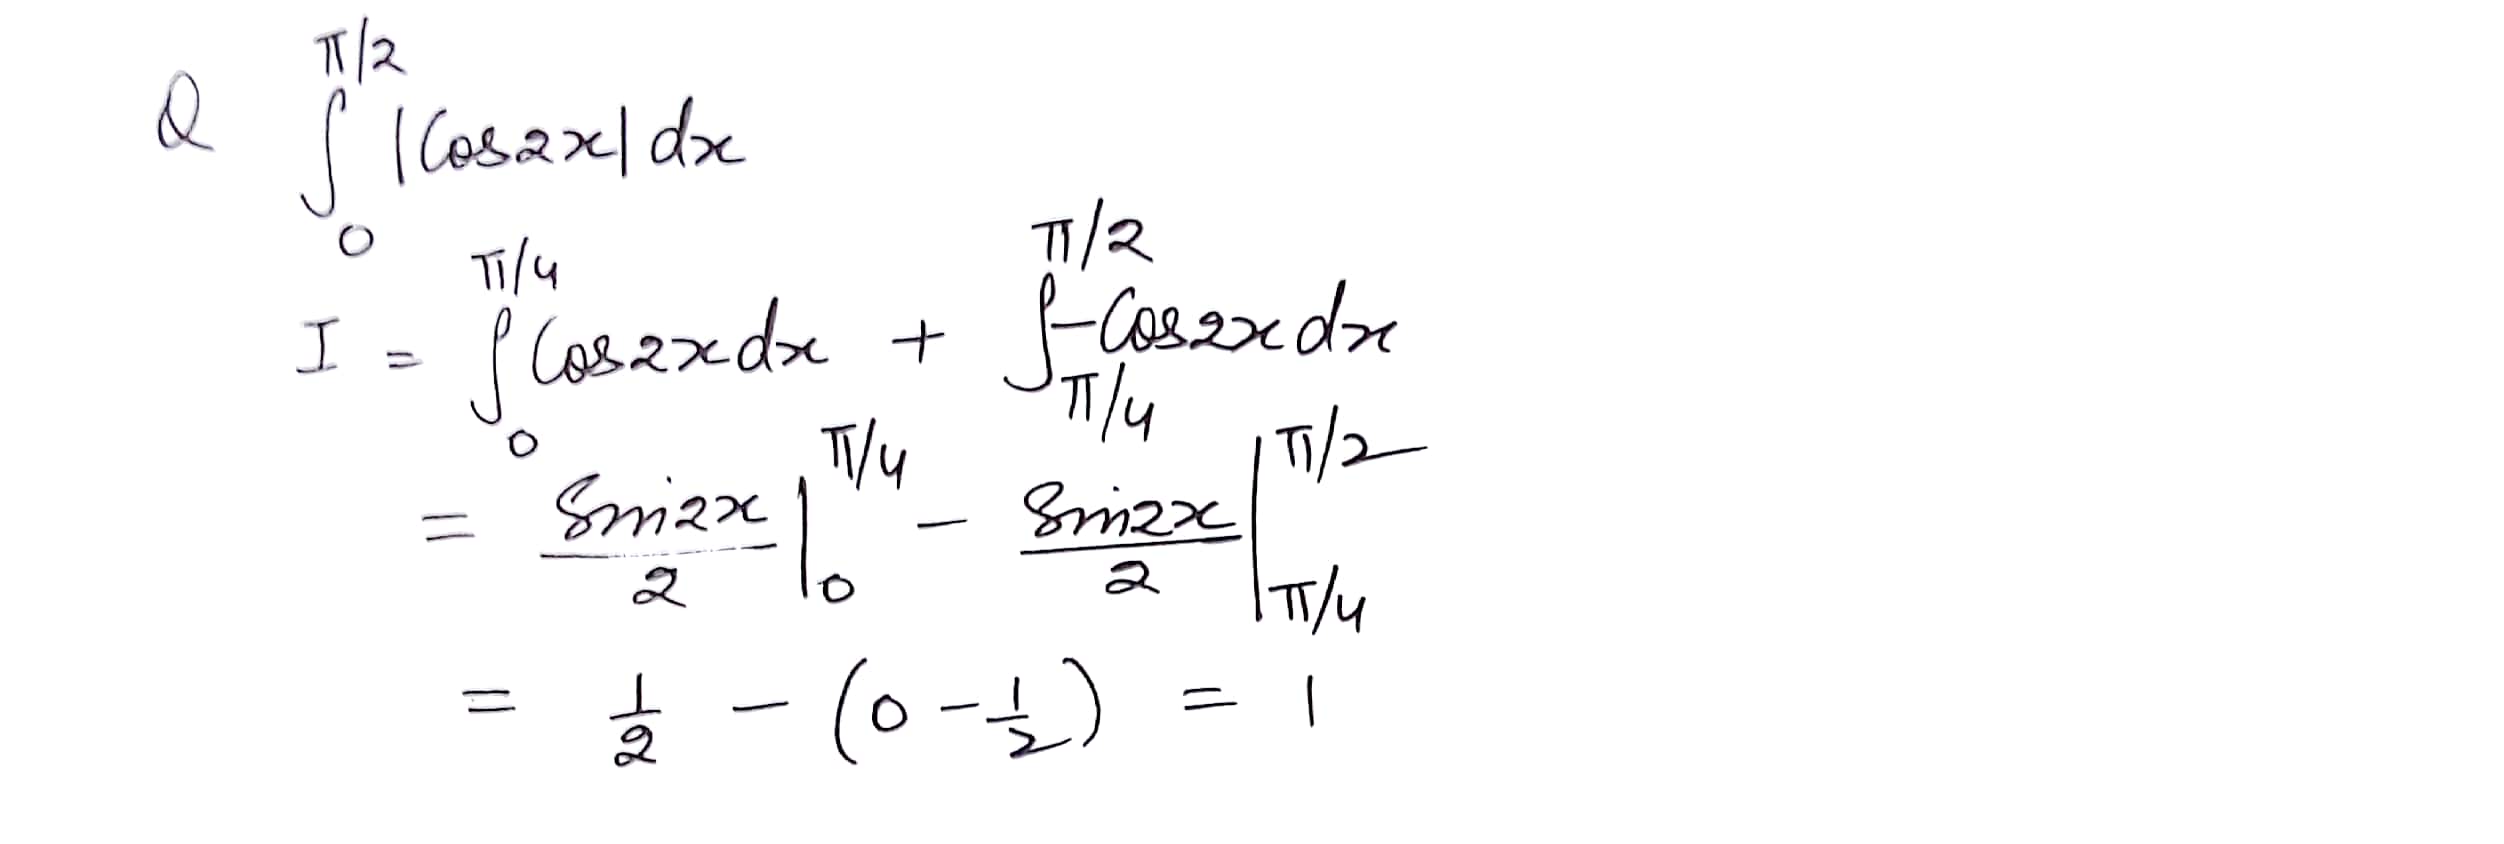 Q ∫₀^{π/2} |Cos2x| dx
I = ∫₀^{π/4} Cos2x dx + ∫_{π/4}^{π/2} -Cos2x dx
= Sin2x/2 |₀^{π/4} - Sin2x/2 |_{π/4}^{π/2}
= 1/2 - (0 - 1/2) = 1